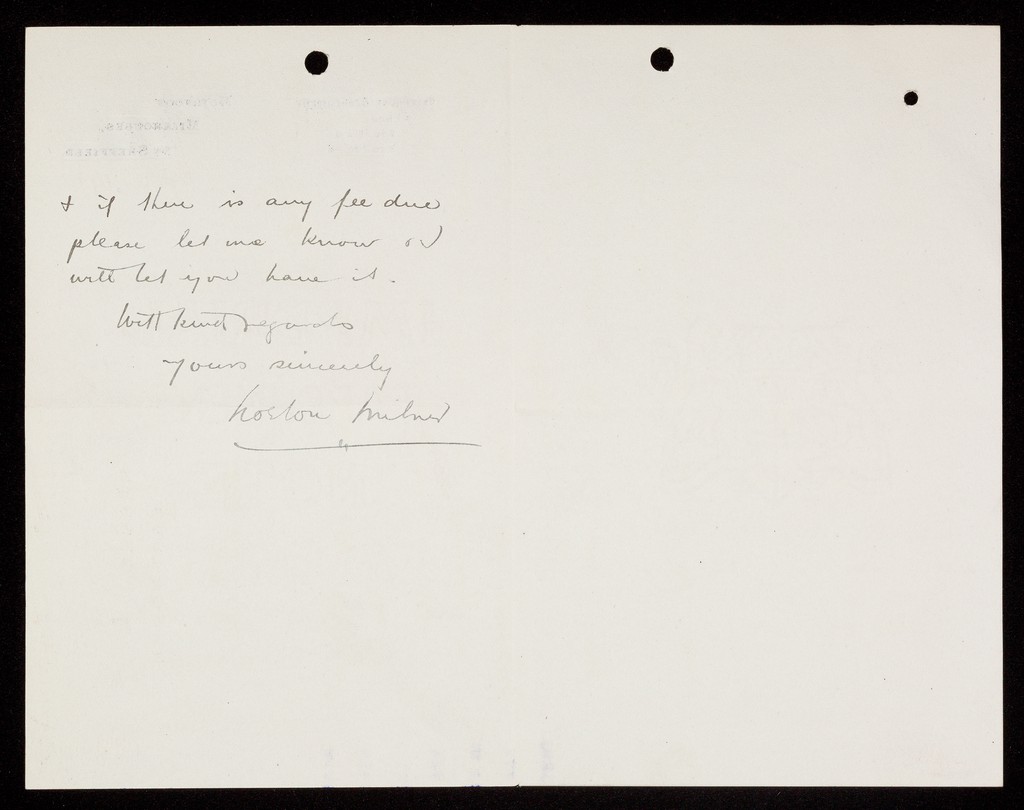 + if there is any fee due
please let me know & I
will let you have it.
With kind regards
Yours sincerely
Roston Milner